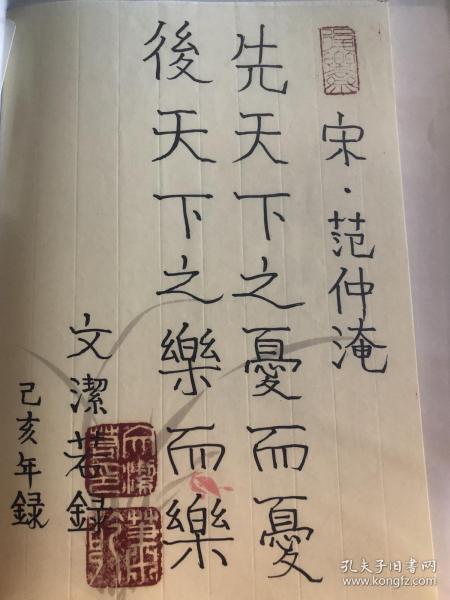 宋·范仲淹
先天下之憂而憂
後天下之樂而樂
文潔若録
己亥年録
孔夫子旧书网
kongfz.com